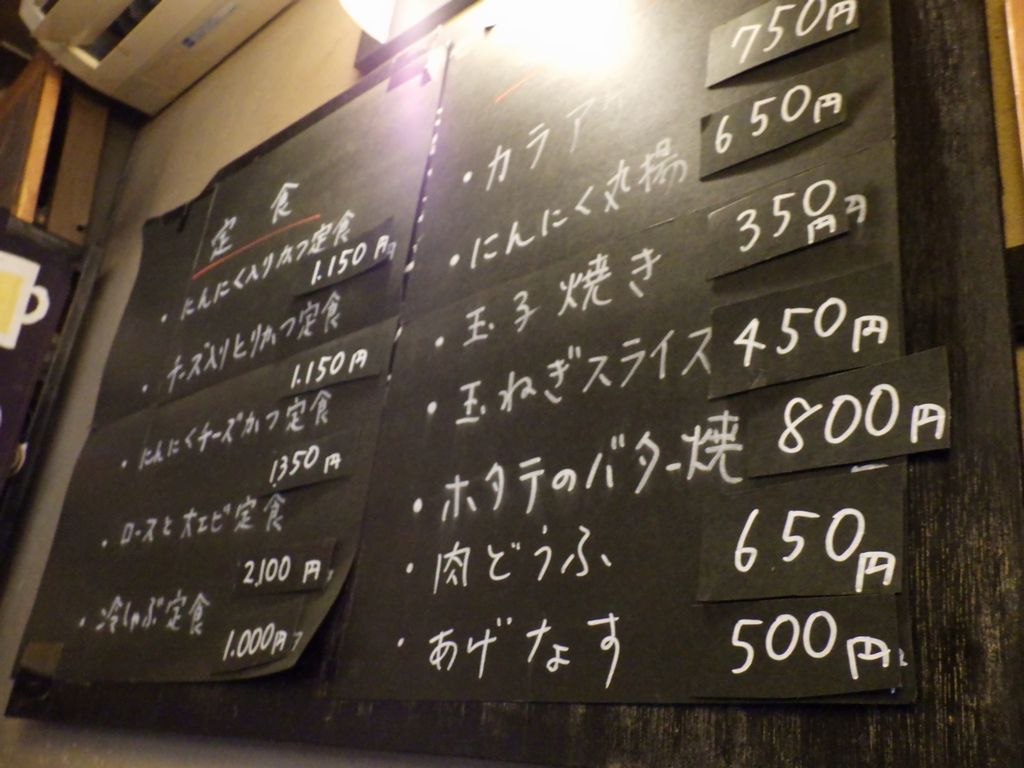 定食
・にんにく入りかつ定食
1.150円
・チーズ入りとりかつ定食
1.150円
・にんにくチーズかつ定食
1350円
・ロースと大エビ定食
2,100円
・冷しゃぶ定食
1.000円
・カラア 750円
・にんにく丸揚 650円
・玉子焼き 350円
・玉ねぎスライス 450円
・ホタテのバター焼 800円
・肉どうふ 650円
・あげなす 500円